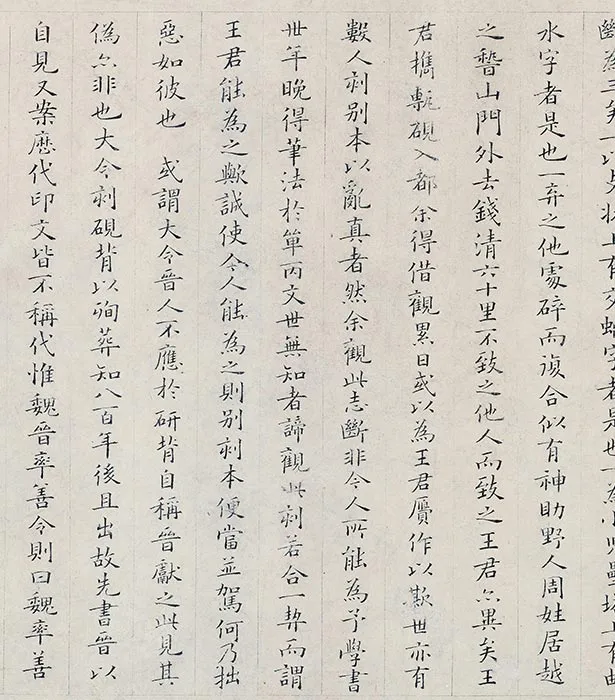 為三矣一以上有交字者是也一為小兒壘上有
水字者是也一弃之他處碎而復合似有神助野人周姓居越
之稽山門外去錢清六十里不致之他人而致之王君亦異矣王
君攜甎硯入都余得借觀累日或以為王君贋作以欺世亦有
數人刻別本以亂真者然余觀此志斷非今人所能為予學書
卅年晚得筆法於單丙文世無知者諦觀此刻若合一契而謂
王君能為之歟誠使今人能為之則别刻本便當並駕何乃拙
惡如彼也 或謂大令晉人不應於研背自稱晉獻之此見其
偽亦非也大令刻硯背以殉葬知八百年後且出故先書晉以
自見又案歷代印文皆不稱代惟魏晉率善令則曰魏率善